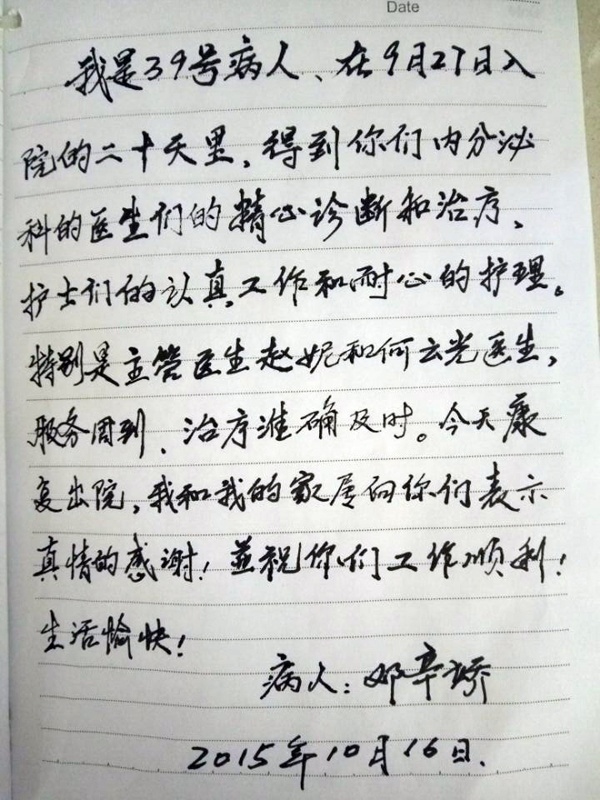 Date
我是39号病人、在9月27日入
院的二十天里,得到你们内分泌
科的医生们的精心诊断和治疗、
护士们的认真工作和耐心的护理。
特别是主管医生赵妮和何云光医生,
服务周到、治疗准确及时。今天康
复出院,我和我的家属向你们表示
真情的感谢!并祝你们工作顺利!
生活愉快!
病人:邓辛娇
2015年10月16日.